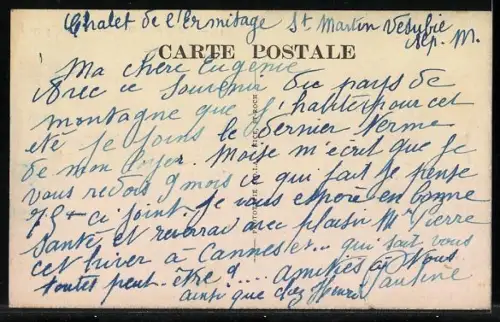 Chalet de l'Ermitage St Martin Vésubie
Alp. M.
CARTE POSTALE
Ma chère Eugénie
Avec ce souvenir du pays de
montagne que j'habite pour cet
été je joins le dernier terme
de mon loyer. Moïse m'écrit que je
vous redois 9 mois ce qui fait je pense
ci joint. Je vous espère en bonne
santé et reverrai avec plaisir Mr Pierre
cet hiver à Cannes et... qui sait vous
toutes peut-être?.... amitiés à Vous
ainsi que chez Pauline